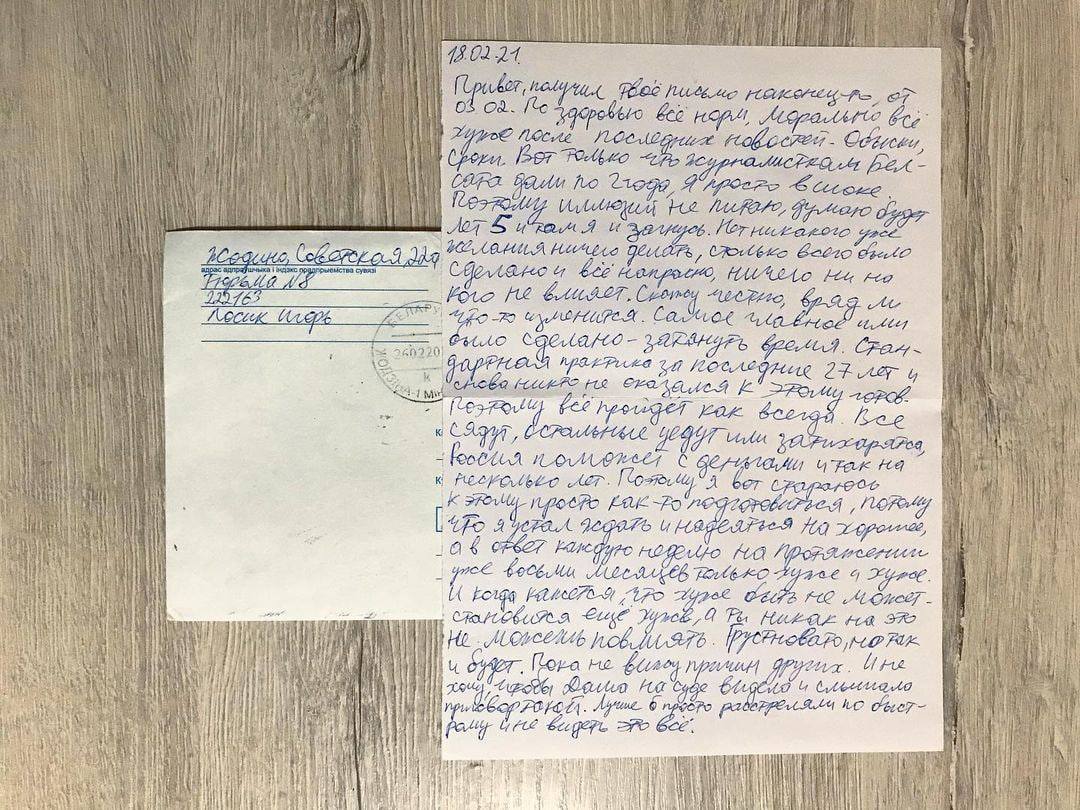 Жодино, Советская, 22а
адрас адпраўшчыка і індэкс прадпрыемства сувязі
Тюрьма №8
222163
Лосик Игорь
БЕЛАРУ
260220
к
18.02.21.
Привет, получил твоё письмо наконец-то, от
03.02. По здоровью всё норм, морально всё
хуже после последних новостей. Обыски,
сроки. Вот только что журналисткам Бел-
сата дали по 2 года, я просто в шоке.
Поэтому иллюзий не питаю, думаю будет
лет 5 и там я и загнусь. Нет никакого уже
желания ничего делать, столько всего было
сделано и всё напрасно, ничего ни на
кого не влияет. Скажу честно, вряд ли
что-то изменится. Самое главное ими
было сделано - затянуть время. Стан-
дартная практика за последние 27 лет и
снова никто не оказался к этому готов.
Поэтому всё пройдёт как всегда. Все
сядут, остальные уедут или затихарятся,
Россия поможет с деньгами и так на
несколько лет. Поэтому я вот стараюсь
к этому просто как-то подготовиться, потому
что я устал ждать и надеяться на хорошее,
а в ответ каждую неделю на протяжении
уже восьми месяцев только хуже и хуже.
И когда кажется, что хуже быть не может-
становится ещё хуже, а ты никак на это
не можешь повлиять. Грустновато, но так
и будет. Пока не вижу причин других. И не
хочу, чтобы Даша на суде видела и слышала
приговор такой. Лучше б просто расстреляли по быст-
рому и не видеть это всё.